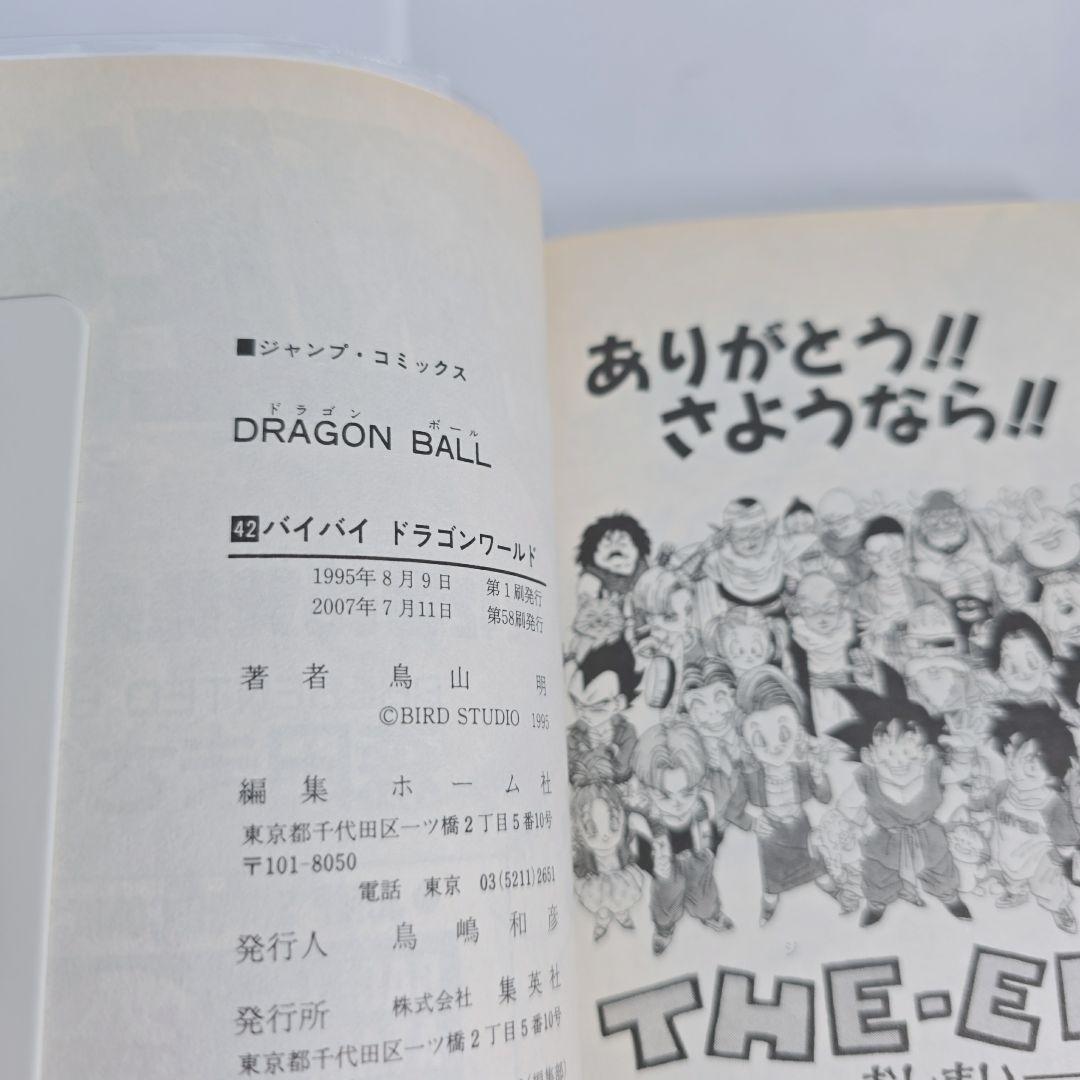 ■ジャンプ・コミックス
ドラゴン ボール
DRAGON BALL
42バイバイ ドラゴンワールド
1995年8月9日 第1刷発行
2007年7月11日 第58刷発行
著者 鳥山明
©BIRD STUDIO 1995
編集 ホーム社
東京都千代田区一ツ橋2丁目5番10号
〒101-8050
電話 東京 03(5211)2651
発行人 鳥嶋和彦
発行所 株式会社 集英社
東京都千代田区一ツ橋2丁目5番10号
(編集部)
ありがとう!!
さようなら!!
THE-E
おしまい